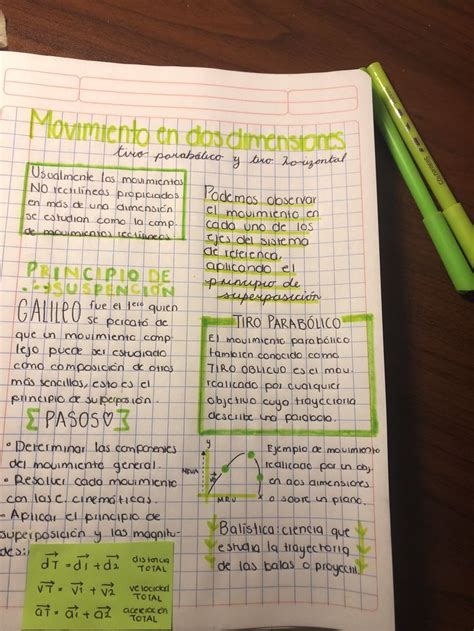 Movimiento en dos dimensiones
tiro parabólico y tiro horizontal
Usualmente los movimientos
NO rectilíneos propiciados
en más de una dimensión
se estudian como la comp.
de movimientos rectilíneos
Podemos observar
el movimiento en
cada uno de los
ejes del sistema
de referencia,
aplicando el
principio de
superposición
PRINCIPIO DE
SUSPENCIÓN
GALILEO fue el 1ero quien
se percató de
que un movimiento comp
lejo puede ser estudiado
como composición de otros
más sencillos, esto es el
principio de superposición.
PASOS♡
• Determinar las componentes
del movimiento general.
• Resolver cada movimiento
con las E. cinemáticas.
• Aplicar el principio de
superposición y las magnitu-
des:
dT = d1 + d2 distancia TOTAL
vT = v1 + v2 velocidad TOTAL
aT = a1 + a2 aceleración TOTAL
TIRO PARABÓLICO
El movimiento parabólico
también conocido como
TIRO OBLICUO es el mov.
realizado por cualquier
objetivo cuya trayectoria
describe una parábola.
y
MRUA
MRU
Ejemplo de movimiento
realizado por un obj.
en dos dimensiones
o sobre un plano.
Balística: ciencia que
estudia la trayectoria
de las balas o proyectil.